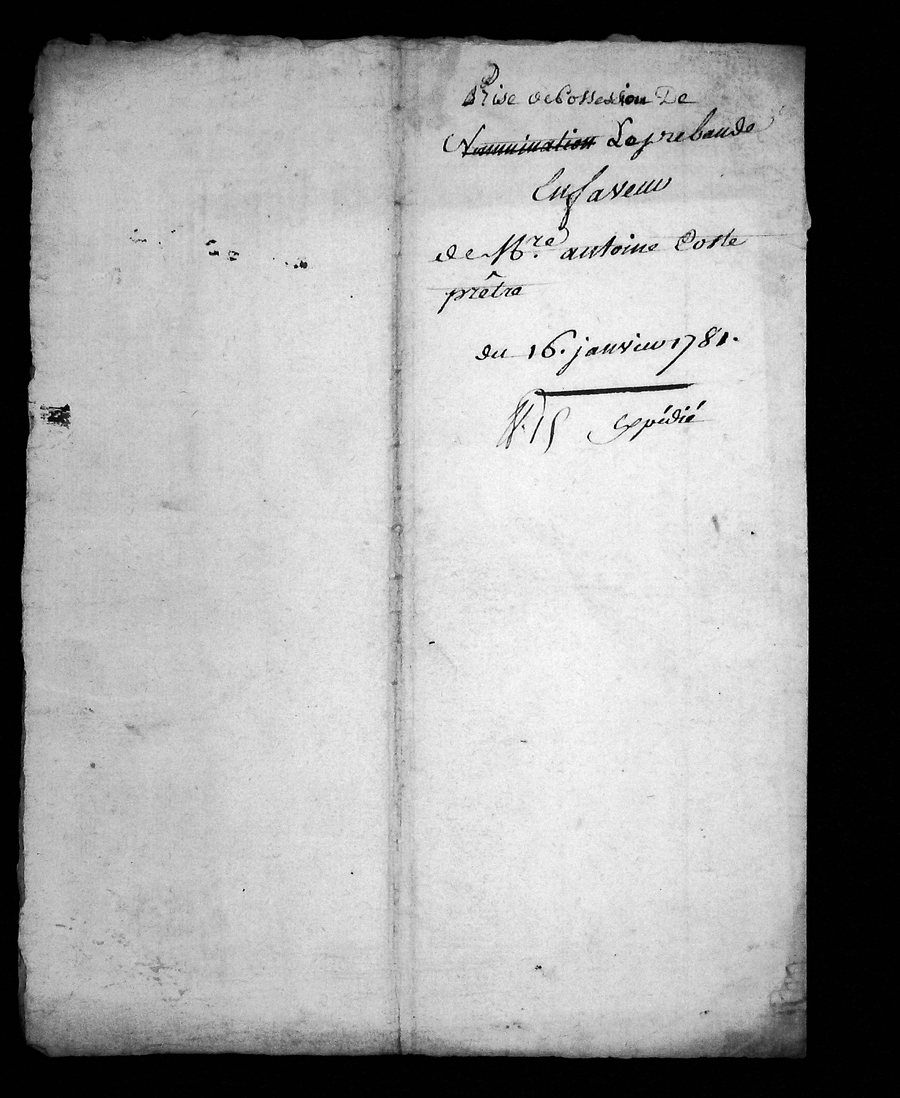 Prise de Possession De
Nomination Leprebande
En faveur
de M.re antoine Coste
prêtre
du 16. janvier 1781.
N. 15 Expédié